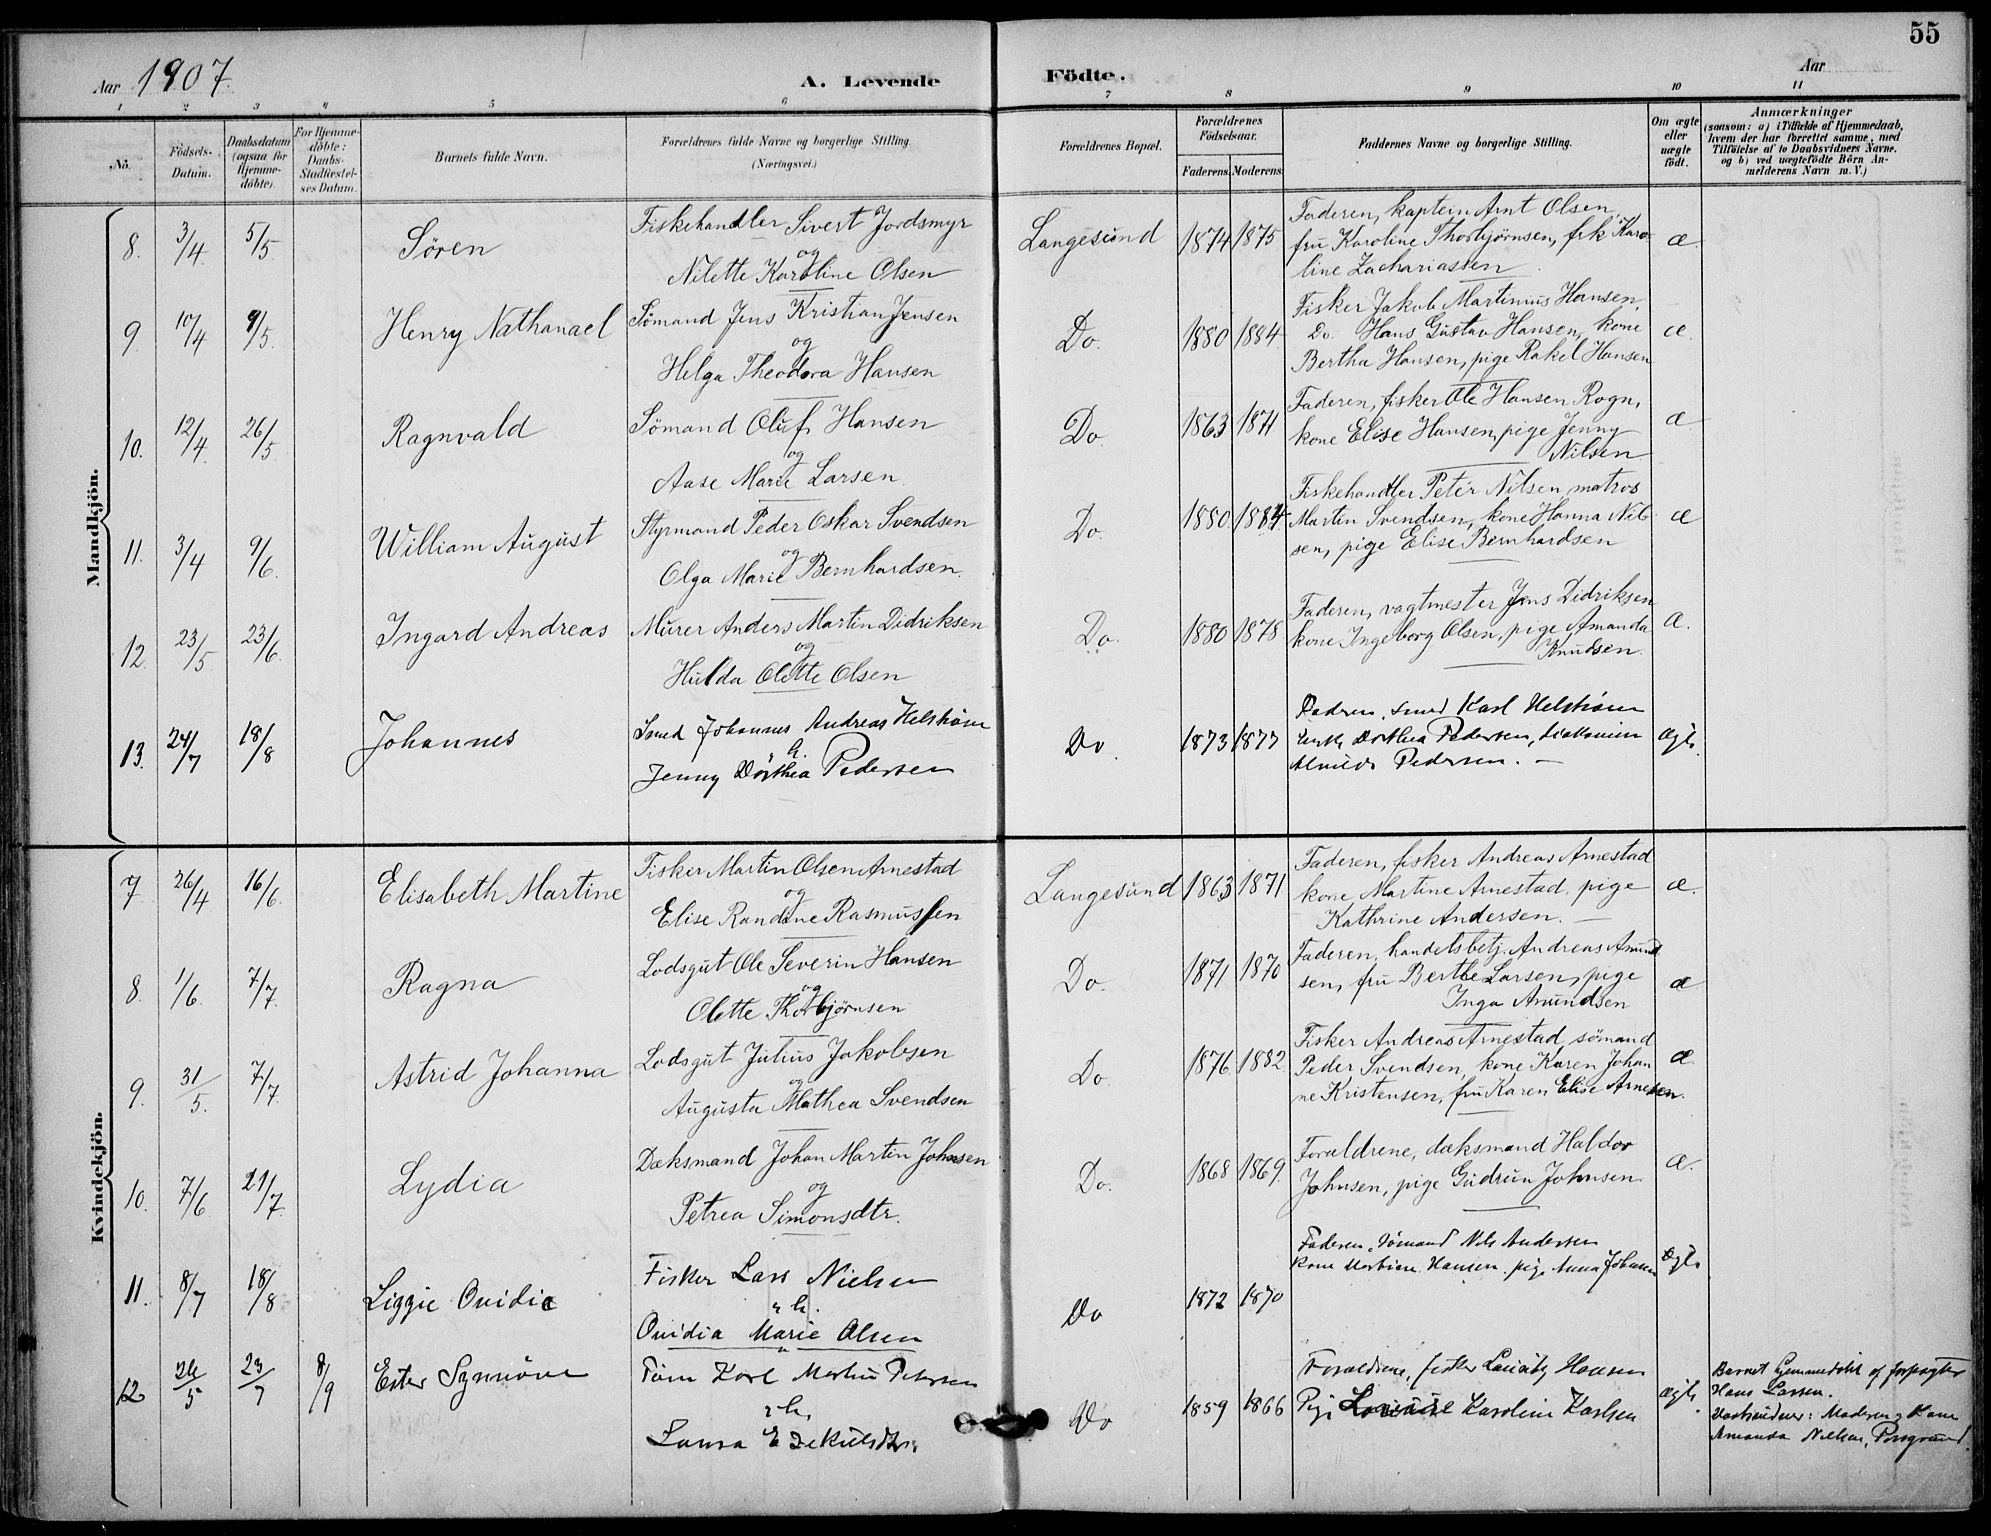 55
Aar 1907.
A. Levende Födte.
Aar
1 2 3 4 5 6 7 8 9 10 11
No.
Födsels-Datum.
Daabsdatum (ogsaa for Hjemme-döbte).
For Hjemme-döbte: Daabs-Stadfæstel-ses Datum.
Barnets fulde Navn.
Forældrenes fulde Navne og borgerlige Stilling.
(Næringsvei.)
Forældrenes Bopæl.
Forældrenes Födselsaar.
Faderens. Moderens.
Faddernes Navne og borgerlige Stilling.
Om ægte eller uægte födt.
Anmærkninger
(saasom: a) i Tilfælde af Hjemmedaab,
hvem der har forrettet samme, med
Tilföielse af to Daabsvidners Navne,
og b) ved uægtefödte Börn An-
melderens Navn m. V.)
Mandkjön.
8. 3/4 5/5 Sören
Fiskehandler Sivert Jordsmyr
og
Nilette Karoline Olsen
Langesund 1874 1875
Faderen, kaptein Arnt Olsen,
fru Karoline Thorbjørnsen, frk Karo-
line Zachariassen
æ.
9. 10/4 9/5 Henry Nathanael
Sömand Jens Kristian Jensen
og
Helga Theodora Hansen
Do. 1880 1884
Fisker Jakob Martinius Hansen,
Do. Hans Gustav Hansen, kone
Bertha Hansen, pige Rakel Hansen
æ.
10. 12/4 26/5 Ragnvald
Sömand Oluf Hansen
og
Aase Marie Larsen.
Do. 1863 1871
Faderen, fisker Ole Hansen Rogn,
kone Elise Hansen, pige Jenny
Nilsen
æ.
11. 3/4 9/6 William August
Styrmand Peder Oskar Svendsen
og
Olga Marie Bernhardsen.
Do. 1880 1884
Fiskehandler Peter Nilsen, matros
Martin Svendsen, kone Hanna Nil-
sen, pige Elise Bernhardsen
æ
12. 23/5 23/6 Ingard Andreas
Murer Anders Martin Didriksen
og
Hulda Olette Olsen
Do. 1880 1878
Faderen, vagtmester Jens Didriksen
kone Ingeborg Olsen, pige Amanda
Knudsen.
æ.
13. 24/7 18/8 Johannes
Smed Johannes Andreas Helström
Jenny Dorthea Pedersen
Do. 1873 1877
Faderen, smed Karl Helström
Enke Dorthea Pedersen,
Pedersen.
Ægte
Kvindekjön.
7 26/4 16/6 Elisabeth Martine
Fisker Martin Olsen Arnestad
og
Elise Randine Rasmussen
Langesund 1863 1871
Faderen, fisker Andreas Arnestad
kone Martine Arnestad, pige
Kathrine Andersen.
æ.
8. 1/6. 7/7. Ragna
Lodsgut Ole Severin Hansen
og
Olette Thorbjörnsen
Do. 1871 1870
Faderen, handelsbetj. Andreas Amund-
sen, fru Berthe Larsen, pige
Inga Amundsen
æ
9. 31/5. 7/7. Astrid Johanna
Lodsgut Julius Jakobsen
og
Augusta Mathea Svendsen
Do. 1876 1882
Fisker Andreas Arnestad, sömand
Peder Svendsen, kone Karen Johan-
ne Kristensen, fru Karen Elise Arnesen.
æ.
10. 7/6. 21/7. Lydia
Dæksmand Johan Martin Johnsen
og
Petrea Simonsdtr.
Do. 1868 1869.
Forældrene, dæksmand Haldor
Johnsen, pige Gudrun Johnsen.
æ.
11. 8/7 18/8 Liggie Ovidie
Fisker Lars Nielsen
Ovidia Marie Olsen
Do 1872 1870
Faderen, sömand Nils Andersen
kone Hansen, pige Anna Johnsen
Ægte
12 26/5 23/7 8/9 Ester Synnöve
Karl Martin Petersen
Laura
Do 1859 1866
Forældrene, fisker Hansen
Pige Karoline Karlsen
ægte
Barnet hjemmedöbt af forpagter
Hans Larsen.
: Moderen og Kone
Amanda Nielsen, Porsgrund.